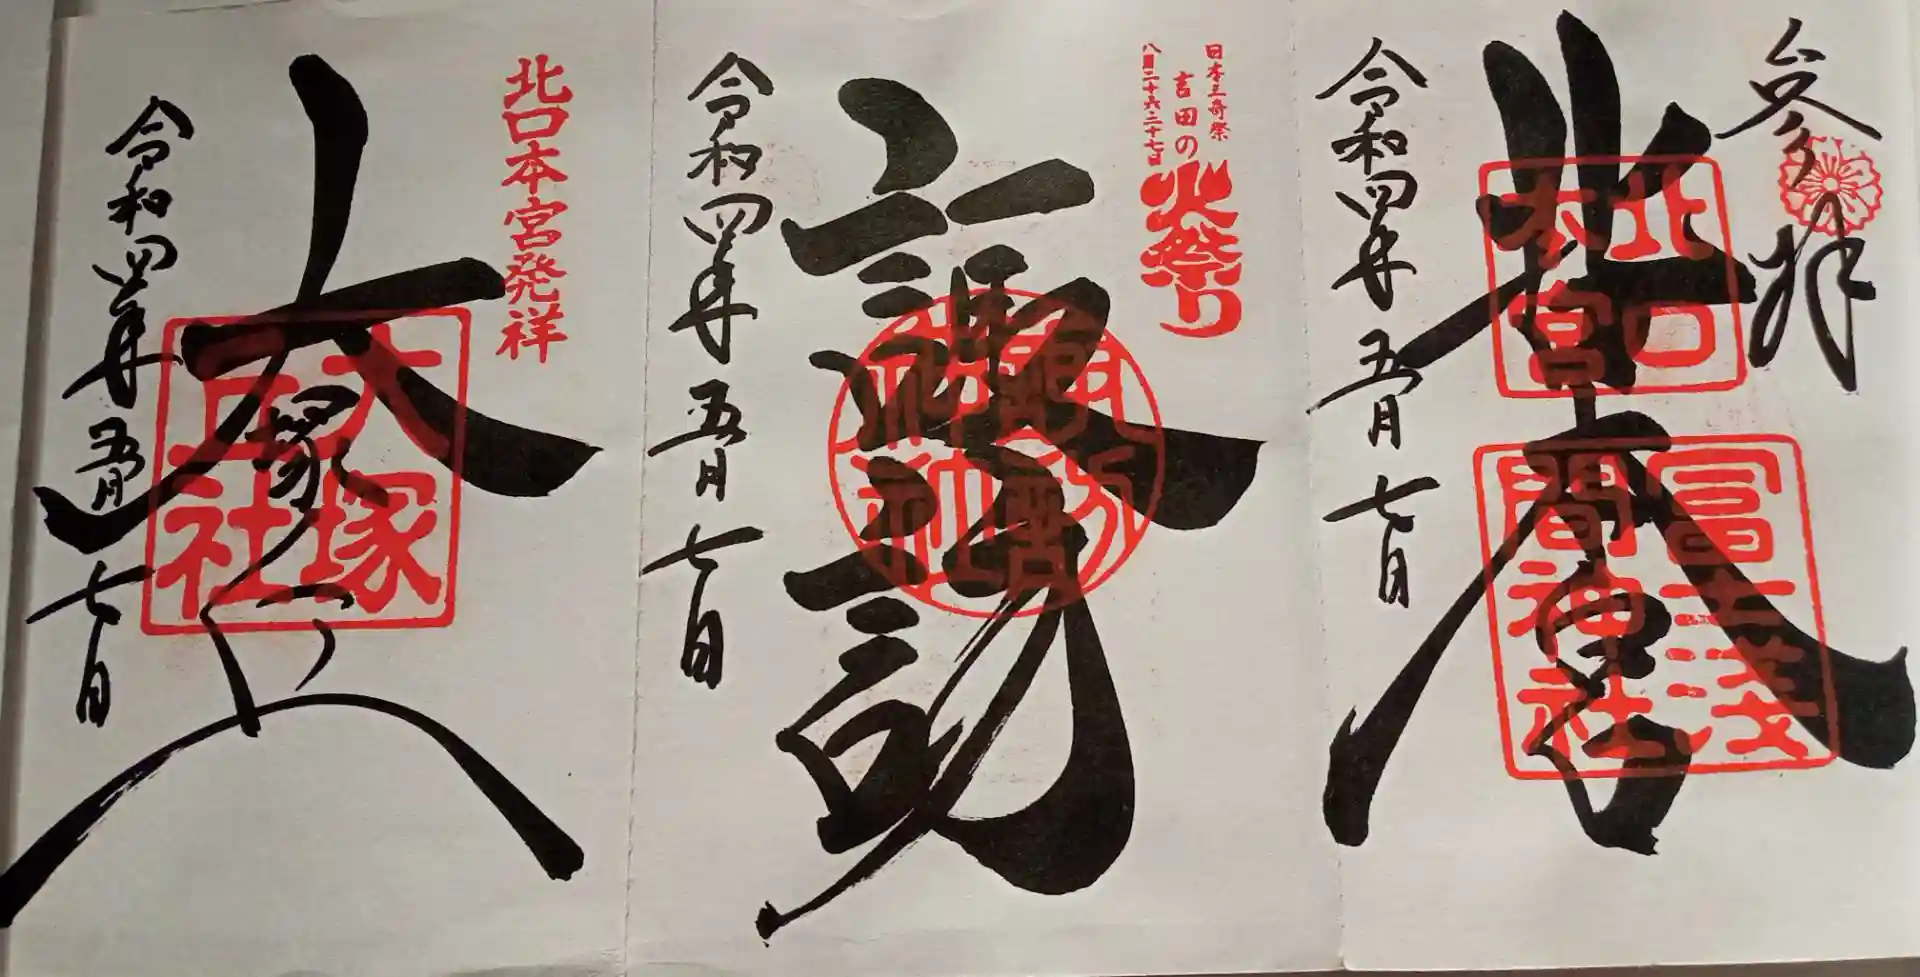 参拝
北口
本宮
北口
本宮
冨士浅
間神社
令和四年五月七日
日本三奇祭
吉田の
火祭り
八月二十六・二十七日
諏訪
諏訪
神社
令和四年五月七日
北口本宮発祥
大塚丘
大塚
丘社
令和四年五月七日